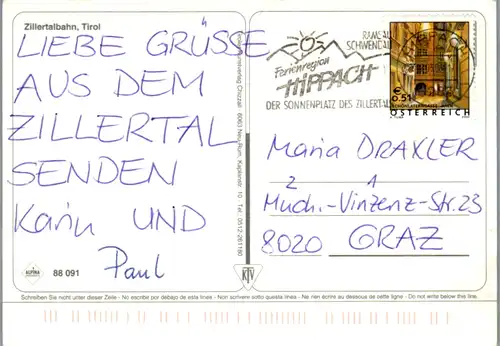 Zillertalbahn, Tirol
LIEBE GRÜSSE
AUS DEM
ZILLERTAL
SENDEN
Karin UND
Paul
88 091
Ferienregion
HIPPACH
RAMSAU
SCHWENDAU
DER SONNENPLATZ DES ZILLERTALS
€ 0,51
ÖSTERREICH
Maria DRAXLER
2 1
Much.-Vinzenz-Str. 23
8020 GRAZ
Chizzali · 6063 Neu-Rum, Kaplanstr. 10 · Tel. 0512-261190
KTV
Schreiben Sie nicht unter dieser Zeile - No escribir por debajo de esta línea - Non scrivere sotto questa linea - Ne rien écrire au dessous de cette ligne - Do not write below this line.